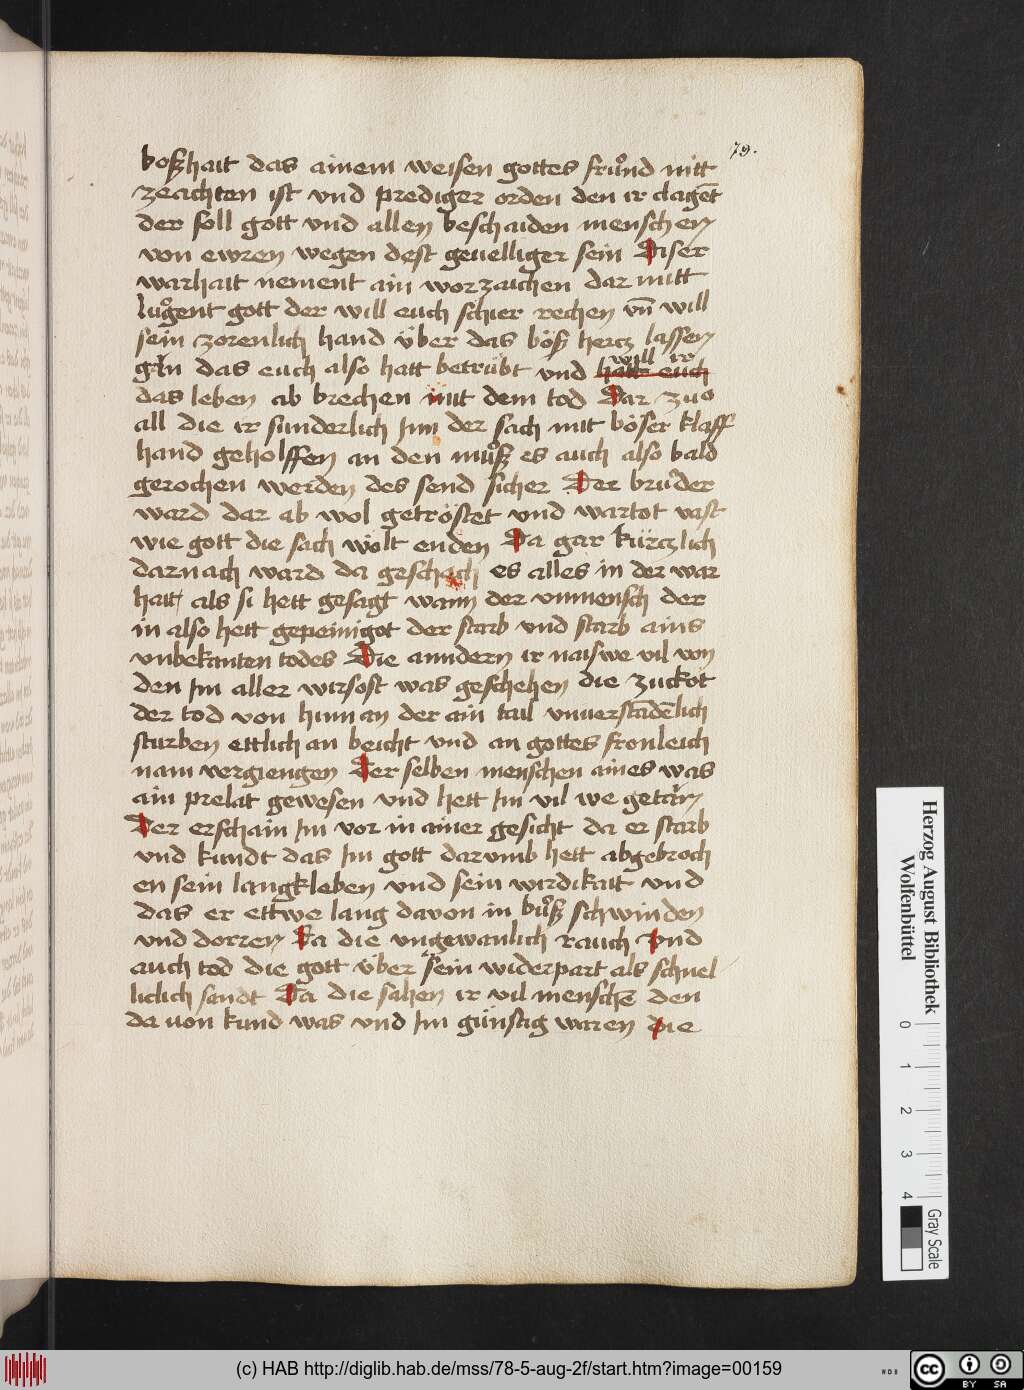 79.
boßhait das ainem weisen gottes fruͦnd nitt
zeachten ist vnd prediger orden den ir clagēt
der soll gott vnd allen beschaiden menschen
von ewren wegen dest geuelliger sein Diser
warhait nement ain worzaichen dar mitt
luͦgent gott der will euch schier rechen vn̄ will
sein zorenlich hand über das böß hercz lassen
gän das euch also hatt betrübt vnd hatt euch
will ir
das leben ab brechen mit dem tod Dar zuo
all die ir sunderlich Im der sach mit böser klaff
hand geholffen an den muͦß es auch also bald
gerochen werden des send sicher Der bruͦder
ward dar ab wol getröstet vnd wartot vast
wie gott die sach wölt enden Da gar kürczlich
darnach ward da geschach es alles in der war
hait als si hett gesagt wann der vnmensch der
in also hett gepeinigot der starb vnd starb ains
vnbekanten todes Die anndern ir naiswe vil von
den Im aller wirsost was geschehen die zuckot
der tod von hinnan der ain tail vnuerstādēlich
sturben ettlich an beicht vnd an gottes fronleich
nam vergiengen Der selben menschen aines was
ain prelat gewesen vnd hett Im vil we getän
Der erschain Im vor in ainer gesicht da er starb
vnd kundt das Im gott darumb hett abgebroch
en sein langkleben vnd sein wirdikait vnd
das er ettwe lang davon in buͦß schwinden
vnd dorren Da die vngewanlich rauch vnd
auch tod die gott über sein widerpart als schnel
liclich sandt Da die sahen ir vil menschē den
da von kund was vnd Im günstig waren die
Herzog August Bibliothek
Wolfenbüttel
0 1 2 3 4
Gray Scale
(c) HAB http://diglib.hab.de/mss/78-5-aug-2f/start.htm?image=00159
WDB
cc BY SA